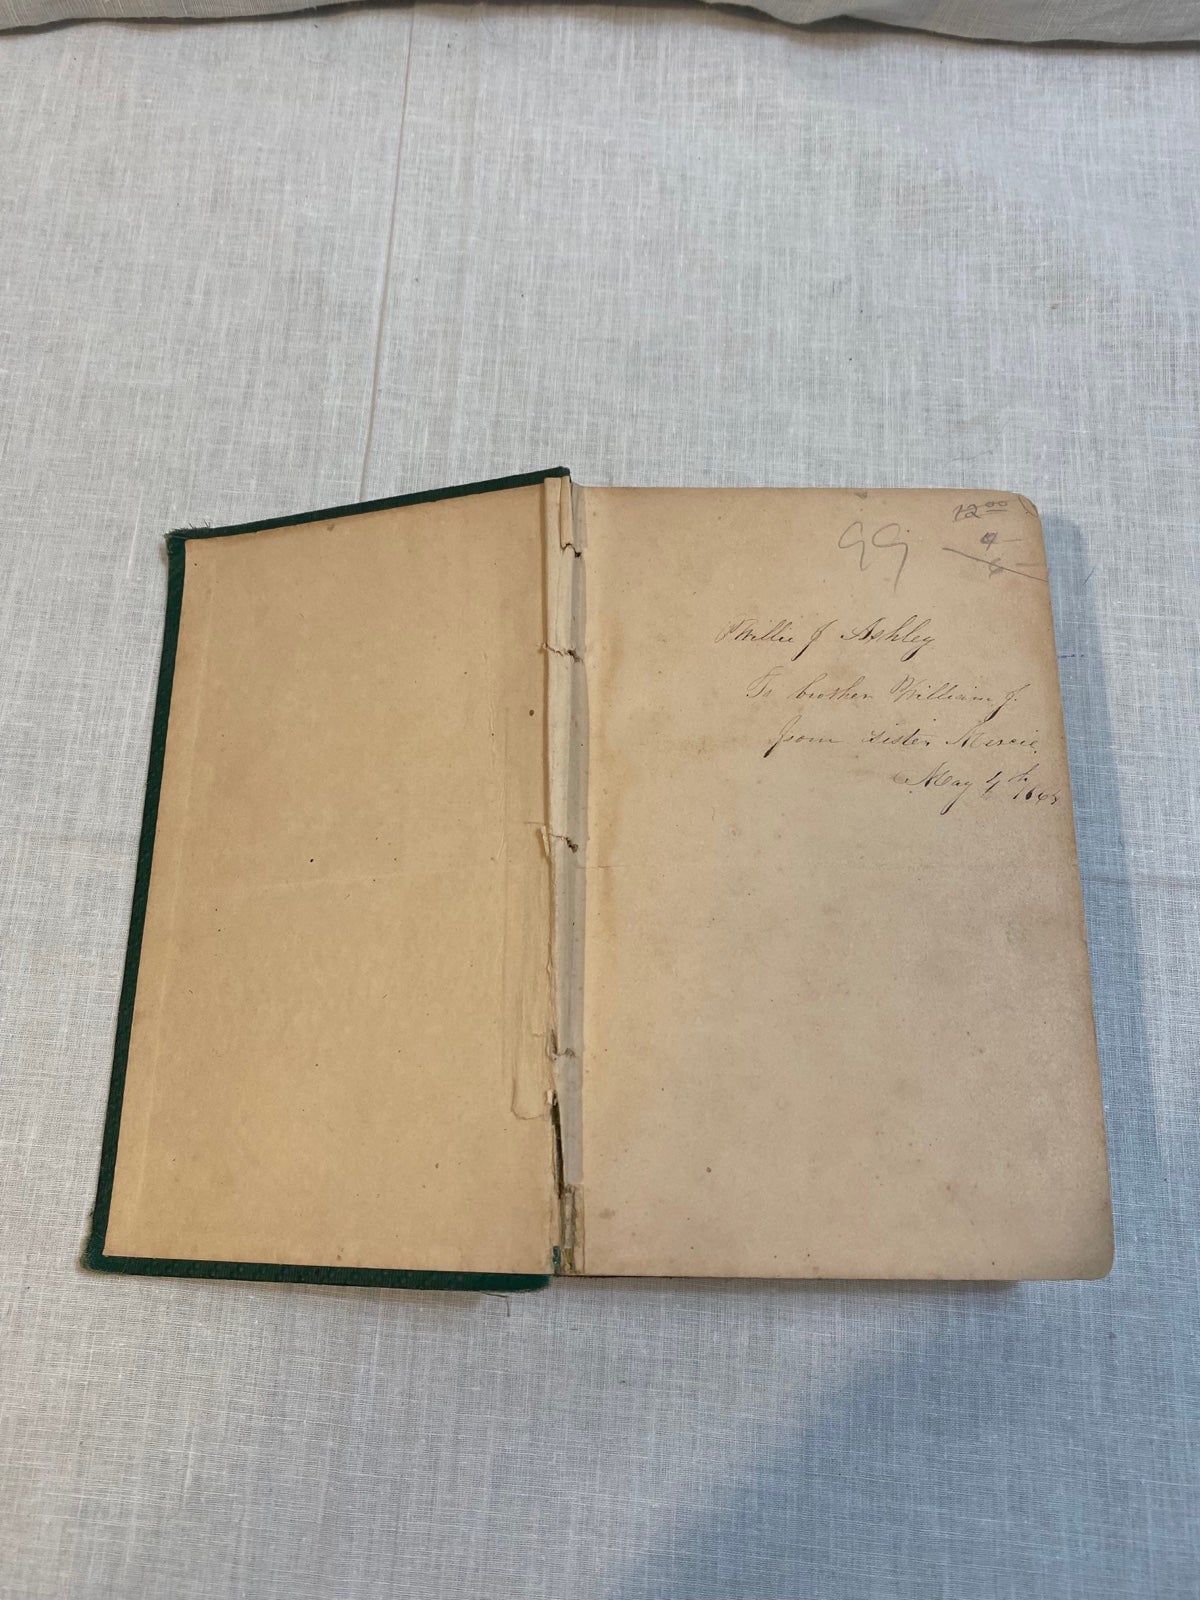 12 00
99
Willie J Ashley
To brother William J.
from sister Mercie.
May 4th